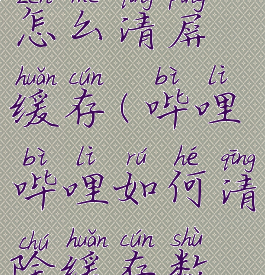 zěn me qīng píng
怎么清屏
huǎn cún bì lì
缓存(哔哩
bì lì rú hé qīng
哔哩如何清
chú huǎn cún shù
除缓存数